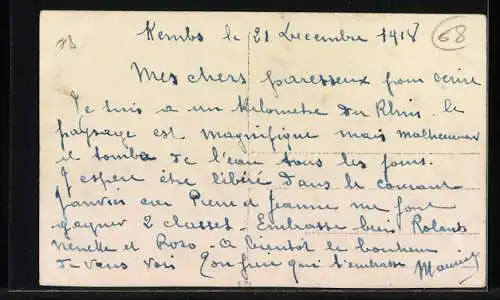 Kembs le 21 Decembre 1918
68
Mes chers paresseux pour écrire
Je suis a un Kilometre du Rhin. le
paysage est magnifique mais malheureu
il tombe de l'eau tous les jours.
J'espère être libéré dans le courant
Janvier car Pierre et Jeanne me font
gagner 2 classes. Embrasse bien Roland
Nenette et Roro. A bientot le bonheur
de vous voir qui t'embrasse Maurice